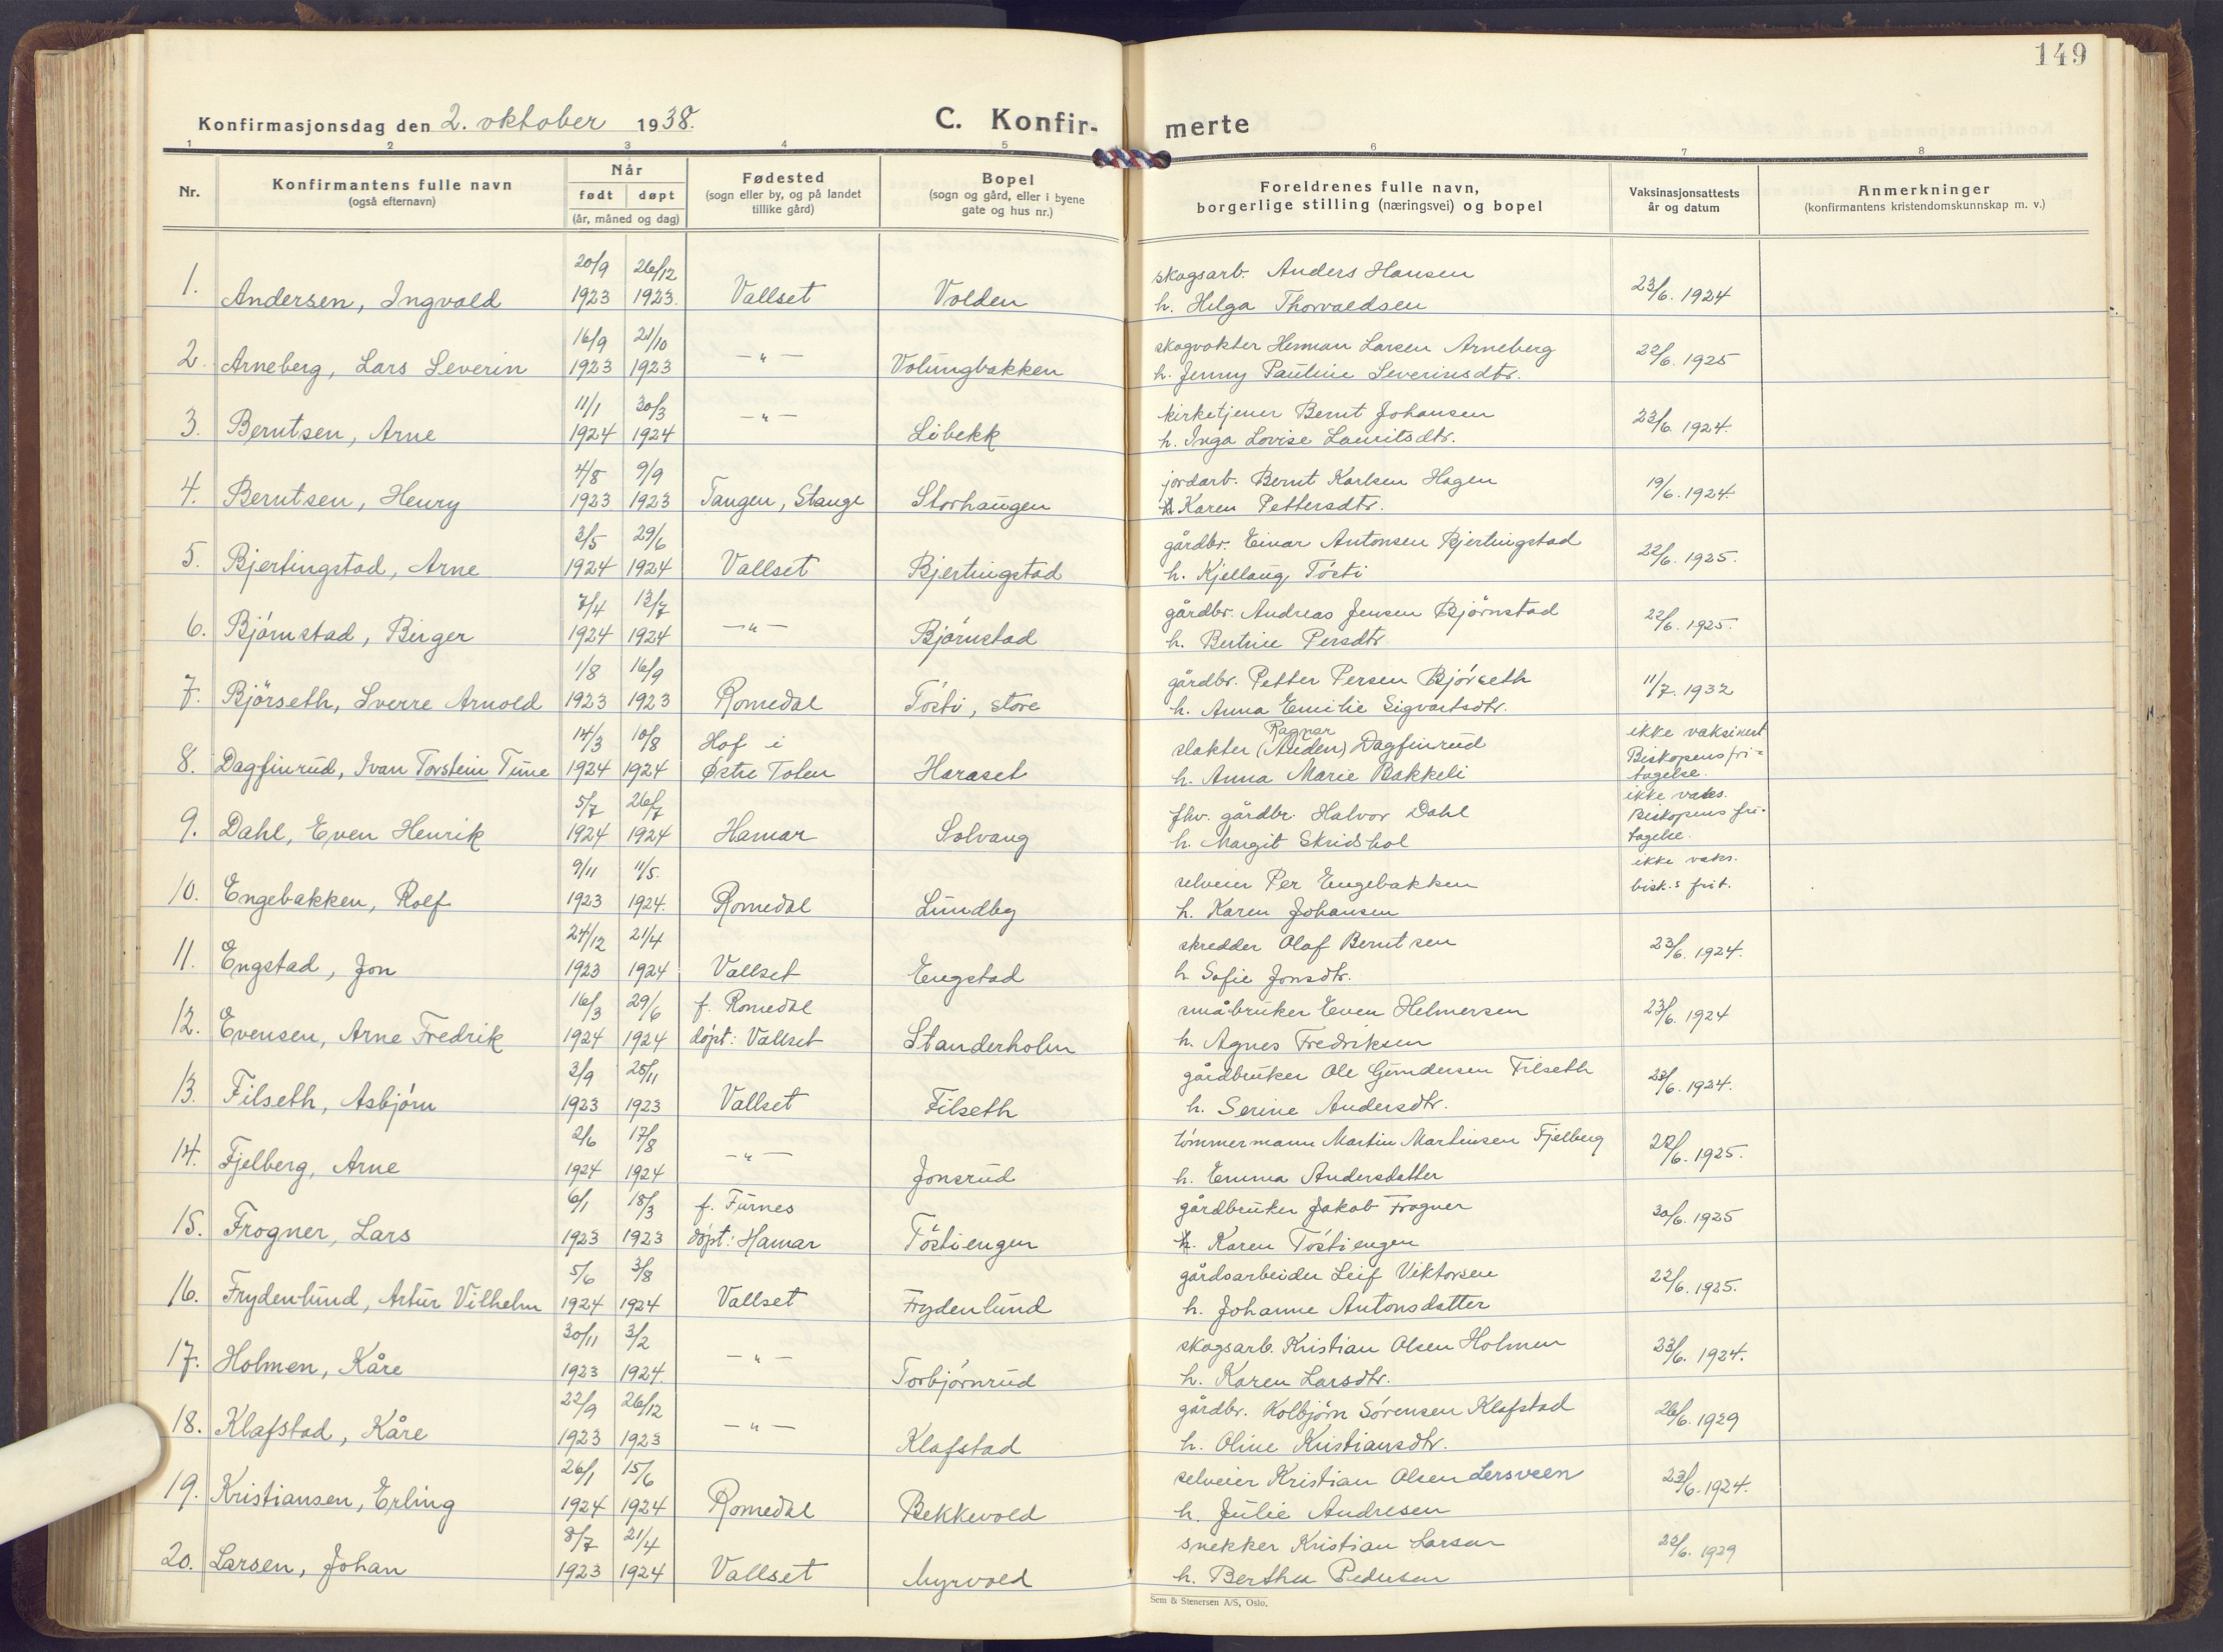 149
Konfirmasjonsdag den 2. oktober 1938.
C. Konfir-
merte
1 2 3 4 5 6 7 8
Nr.
Konfirmantens fulle navn
(også efternavn)
Når
født døpt
(år, måned og dag)
Fødested
(sogn eller by, og på landet
tillike gård)
Bopel
(sogn og gård, eller i byene
gate og hus nr.)
Foreldrenes fulle navn,
borgerlige stilling (næringsvei) og bopel
Vaksinasjonsattests
år og datum
Anmerkninger
(konfirmantens kristendomskunnskap m. v.)
20/9 26/12 skogsarb. Anders Hansen
1. Andersen, Ingvald 1923 1923. Vallset Volden h. Helga Thorvaldsen 23/6. 1924
16/9 21/10 skogvokter Herman Larsen Arneberg
2. Arneberg, Lars Severin 1923 1923 -"- Volungbakken h. Jenny Pauline Severinsdtr. 22/6. 1925
11/1 30/3 kirketjener Bernt Johansen
3. Berntsen, Arne 1924 1924 -"- Libekk h. Inga Lovise Lauritsdtr. 23/6. 1924.
4/8 9/9 jordarb. Bernt Karlsen Hagen
4. Berntsen, Henry 1923 1923 Tangen, Stange Storhaugen h. Karen Pettersdtr. 19/6. 1924.
3/5 29/6 gårdbr. Einar Antonsen Bjertingstad
5. Bjertingstad, Arne 1924 1924 Vallset Bjertingstad h. Kjellaug Tósti 22/6. 1925.
7/4 13/7 gårdbr. Andreas Jensen Björnstad
6. Bjórnstad, Birger 1924 1924 -"- Bjórnstad h. Bertine Persdtr. 22/6. 1925.
1/8 16/9 gårdbr. Petter Persen Bjórseth
7. Bjørseth, Sverre Arnold 1923 1923 Romedal Tósti, store h. Anna Emilie Sigvartsdtr. 11/7. 1932
14/3 10/8 Hof i slakter (Auden) Ragnar Dagfinrud ikke vaksinert
8. Dagfinrud, Ivan Torstein Tune 1924 1924 Østre Toten Haraset h. Anna Marie Bakkeli Biskopens fri=
tagelse.
5/7 26/7 fhv. gårdbr. Halvor Dahl ikke vaks.
9. Dahl, Even Henrik 1924 1924 Hamar Solvang h. Margit Skridshol Biskopens fri-
tagelse.
9/11 11/5. selveier Per Engebakken ikke vaks.
10. Engebakken, Rolf 1923 1924. Romedal Lundby h. Karen Johansen bisk.s frit.
24/12 21/4 skredder Olaf Berntsen
11. Engstad, Jon 1923 1924 Vallset Engstad h. Sofie Jonsdtr. 23/6. 1924.
16/3 29/6 f. Romedal småbruker Even Helmersen
12. Evensen, Arne Fredrik 1924 1924 dópt: Vallset Standerholm h. Agnes Fredriksen 23/6. 1924
3/9 25/11 gårdbruker Ole Gundersen Filseth
13. Filseth, Asbjórn 1923 1923 Vallset Filseth h. Serine Andersdtr. 23/6. 1924.
2/6 17/8 tómmermann Martin Martinsen Fjelberg
14. Fjelberg, Arne 1924 1924 -"- Jonsrud h. Emma Andersdatter 22/6. 1925.
6/1 18/3 f. Furnes gårdbruker Jakob Frogner
15. Frogner, Lars 1923 1923 dópt: Hamar Tóstiengen h. Karen Tóstiengen 30/6. 1925
5/6 3/8 gårdsarbeider Leif Viktorsen
16. Frydenlund, Artur Vilhelm 1924 1924 Vallset Frydenlund h. Johanne Antonsdatter 22/6. 1925.
30/11 3/2 skogsarb. Kristian Olsen Holmen
17. Holmen, Kåre 1923 1924. -"- Torbjórnrud h. Karen Larsdtr. 23/6. 1924.
22/9 26/12 gårdbr. Kolbjórn Sórensen Klafstad
18. Klafstad, Kåre 1923 1923 -"- Klafstad h. Oline Kristiansdtr. 26/6. 1929
26/1 15/6 selveier Kristian Olsen Lersveen
19. Kristiansen, Erling 1924 1924 Romedal Bekkevold h. Julie Andresen 23/6. 1924.
8/7 21/4 snekker Kristian Larsen
20. Larsen, Johan 1923 1924 Vallset Myrvold h. Berthea Pedersen 22/6. 1929
Sem & Stenersen A/S, Oslo.